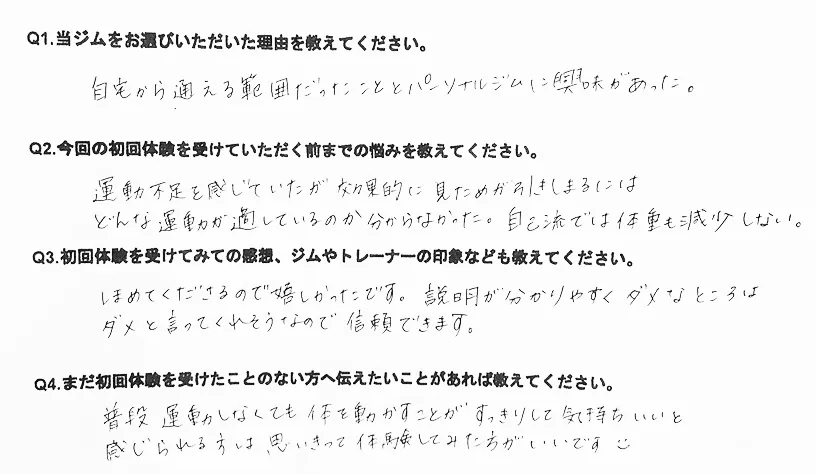 Q1.当ジムをお選びいただいた理由を教えてください。
自宅から通える範囲だったこととパーソナルジムに興味があった。
Q2.今回の初回体験を受けていただく前までの悩みを教えてください。
運動不足を感じていたが効果的に見ためが引きしまるには
どんな運動が適しているのか分からなかった。自己流では体重も減少しない。
Q3.初回体験を受けてみての感想、ジムやトレーナーの印象なども教えてください。
ほめてくださるので嬉しかったです。説明が分かりやすくダメなところは
ダメと言ってくれそうなので信頼できます。
Q4.まだ初回体験を受けたことのない方へ伝えたいことがあれば教えてください。
普段運動しなくても体を動かすことがすっきりして気持ちいいと
感じられる方は思いきって体験してみた方がいいです